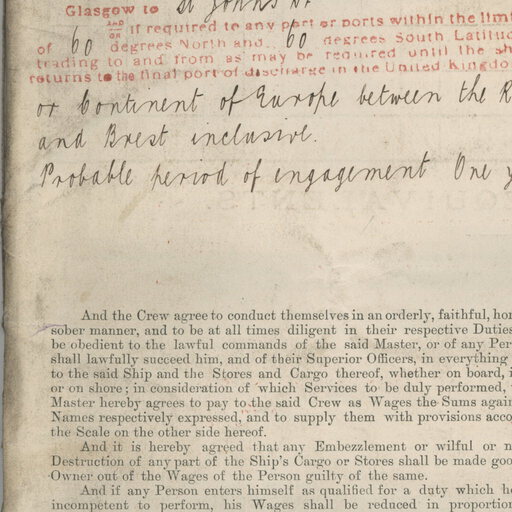 Glasgow to St Johns
AND OR if required to any port or ports within the limi
of 60 degrees North and 60 degrees South Latitud
trading to and from as may be required until the sh
returns to the final port of discharge in the United Kingdo
or Continent of Europe between the R
and Brest inclusive.
Probable period of engagement One y
And the Crew agree to conduct themselves in an orderly, faithful, hon
sober manner, and to be at all times diligent in their respective Duties
be obedient to the lawful commands of the said Master, or of any Per
shall lawfully succeed him, and of their Superior Officers, in everything
to the said Ship and the Stores and Cargo thereof, whether on board, i
or on shore; in consideration of which Services to be duly performed,
Master hereby agrees to pay to the said Crew as Wages the Sums again
Names respectively expressed, and to supply them with provisions acco
the Scale on the other side hereof.
And it is hereby agreed that any Embezzlement or wilful or n
Destruction of any part of the Ship's Cargo or Stores shall be made goo
Owner out of the Wages of the Person guilty of the same.
And if any Person enters himself as qualified for a duty which he
incompetent to perform, his Wages shall be reduced in proportion